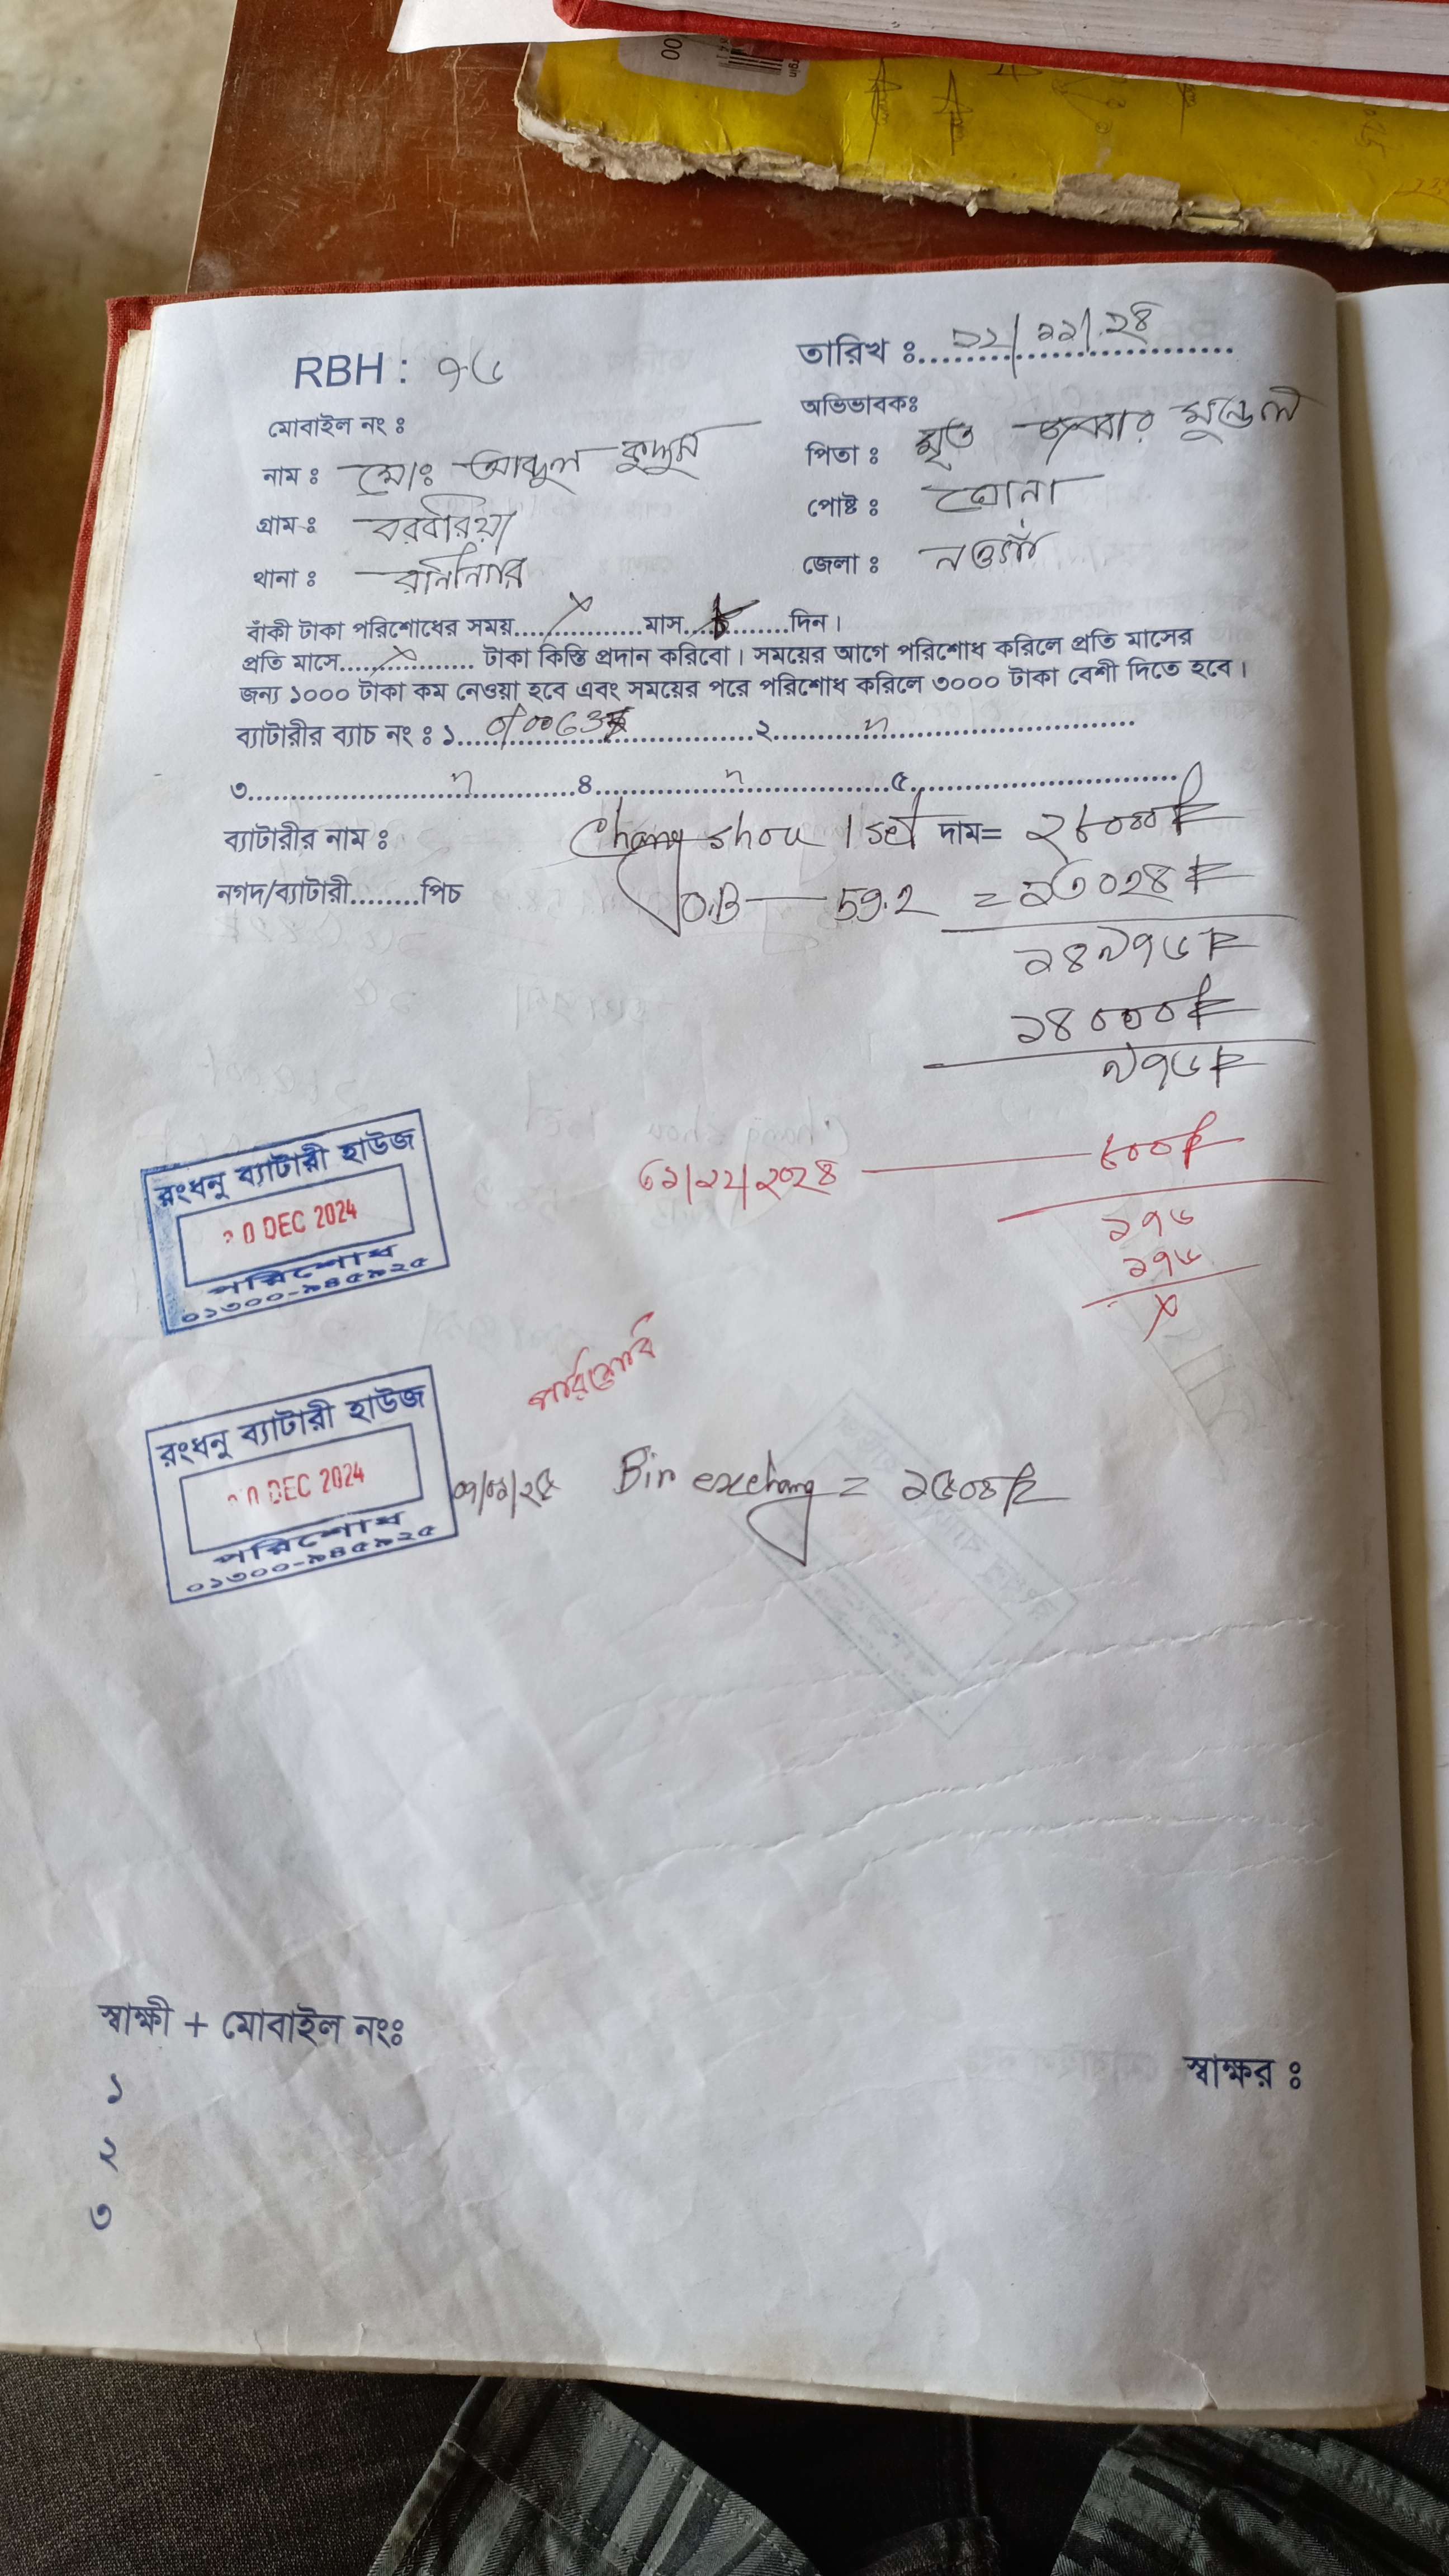 RBH : ৭৬
তারিখ ঃ ২২/১১/২৪
মোবাইল নং ঃ
অভিভাবকঃ
নাম ঃ মোঃ আব্দুল কুদ্দুস
পিতা ঃ মৃত জব্বার মন্ডল
গ্রাম ঃ বরবরিয়া
পোষ্ট ঃ
থানা ঃ রানিনগর
জেলা ঃ নওগাঁ
বাঁকী টাকা পরিশোধের সময়.....×.....মাস..........দিন।
প্রতি মাসে.....×..... টাকা কিস্তি প্রদান করিবো। সময়ের আগে পরিশোধ করিলে প্রতি মাসের
জন্য ১০০০ টাকা কম নেওয়া হবে এবং সময়ের পরে পরিশোধ করিলে ৩০০০ টাকা বেশী দিতে হবে।
ব্যাটারীর ব্যাচ নং ঃ ১..........২..........
৩..........৪..........৫..........
ব্যাটারীর নাম ঃ Chang shou 1 set দাম= ২৮০০০
নগদ/ব্যাটারী........পিচ O.B — 59.2 = ১৩০২৪
১৪৯৭৬
১৪০০০
৯৭৬
৩১/১২/২০২৪ — ৮০০
১৭৬
১৭৬
×
রংধনু ব্যাটারী হাউজ
0 DEC 2024
পরিশোধ
০১৩০০-৯৪৫৯২৫
পরিশোধ
রংধনু ব্যাটারী হাউজ
0 DEC 2024
পরিশোধ
০১৩০০-৯৪৫৯২৫
Bin exchang = ১৫০০
স্বাক্ষী + মোবাইল নংঃ
স্বাক্ষর ঃ
১
২
৩